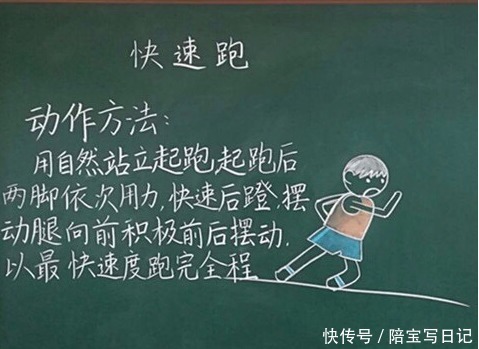 快速跑
动作方法:
用自然站立起跑,起跑后
两脚依次用力,快速后蹬,摆
动腿向前积极前后摆动,
以最快速度跑完全程
快传号/陪宝写日记